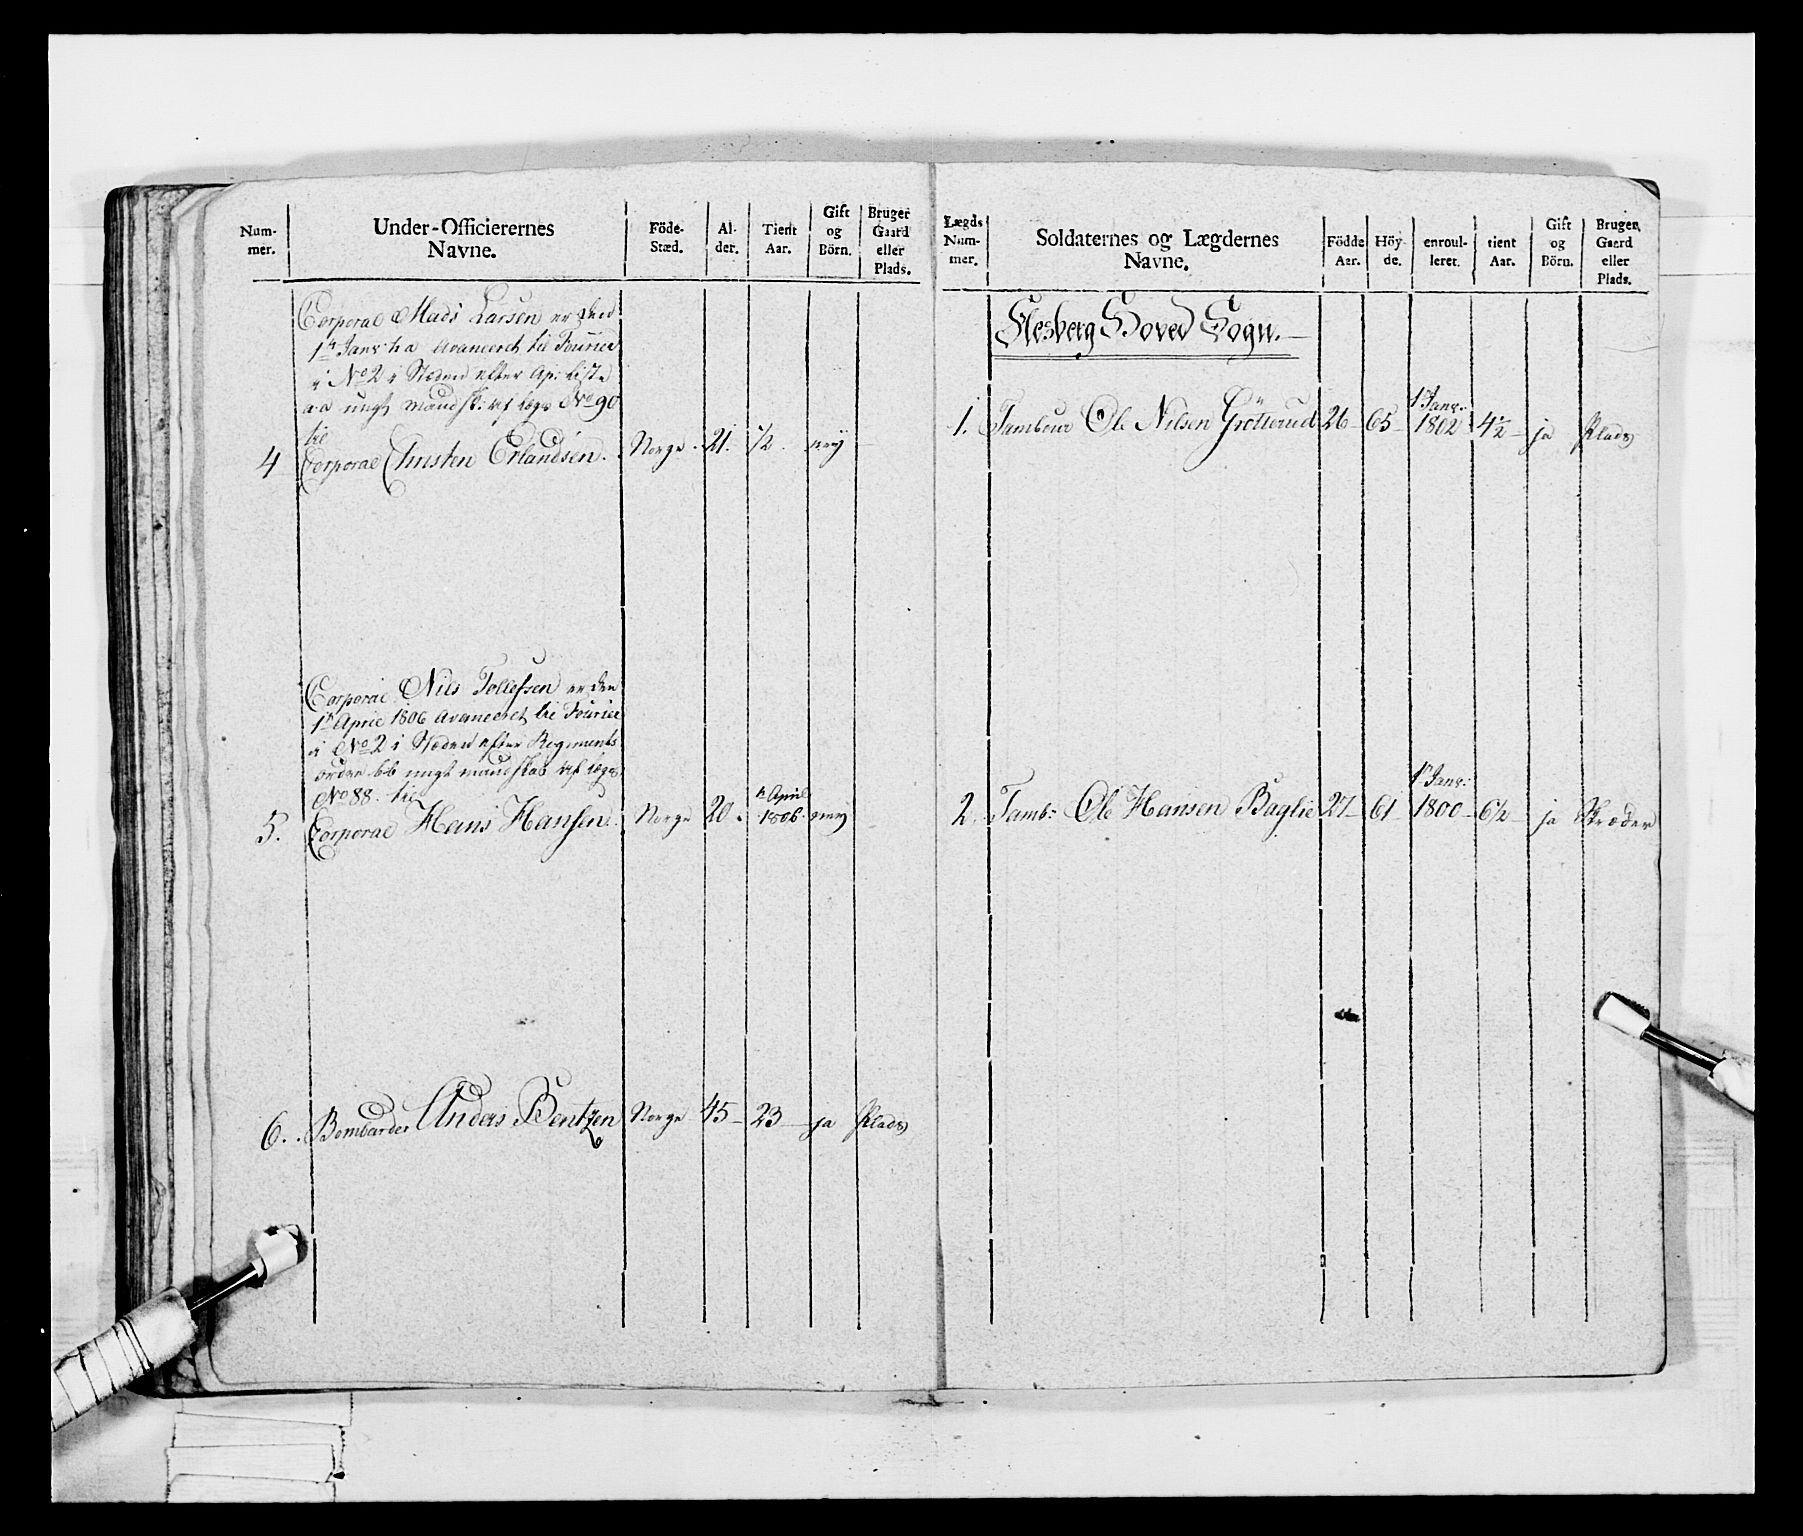 Num-
mer.
Under-Officierernes
Navne.
Föde-
Stæd.
Al-
der.
Tient
Aar.
Gift
og
Börn.
Bruger
Gaard
eller
Plads.
Corporal Mads Larsen er den
1te Janr: h a Avanceret til Fourier
i No 2 i Stæden efter
ungt mandsk: af No 90
til
4 Corporal Christen Erlandsen. Norge. 21. 1/2. ney
Corporal Nils Tollefsen er den
1te April 1806 Avanceret til Fourier
i No 2 i Stæden efter Regiments
ordre bb ungt mandskab af
No 88. til
5. Corporal Hans Hansen. Norge 20. 1te April 1806. ney
6. Bombarder Anders Bentzen Norge 45 23 ja Plads
Lægds
Num-
mer.
Soldaternes og Lægdernes
Navne.
Födde
Aar.
Höy-
de.
enroul-
leret.
tient
Aar.
Gift
og
Börn.
Bruger,
Gaard
eller
Plads.
Flesberg Hoved Sogn.
1. Tambour Ole Nilsen Grötterud 26 65 1te Janr: 1802 4 1/2 ja Plads
2. Tamb: Ole Hansen Baglie 27 61 1te Janr: 1800 6 1/2 ja Skræder